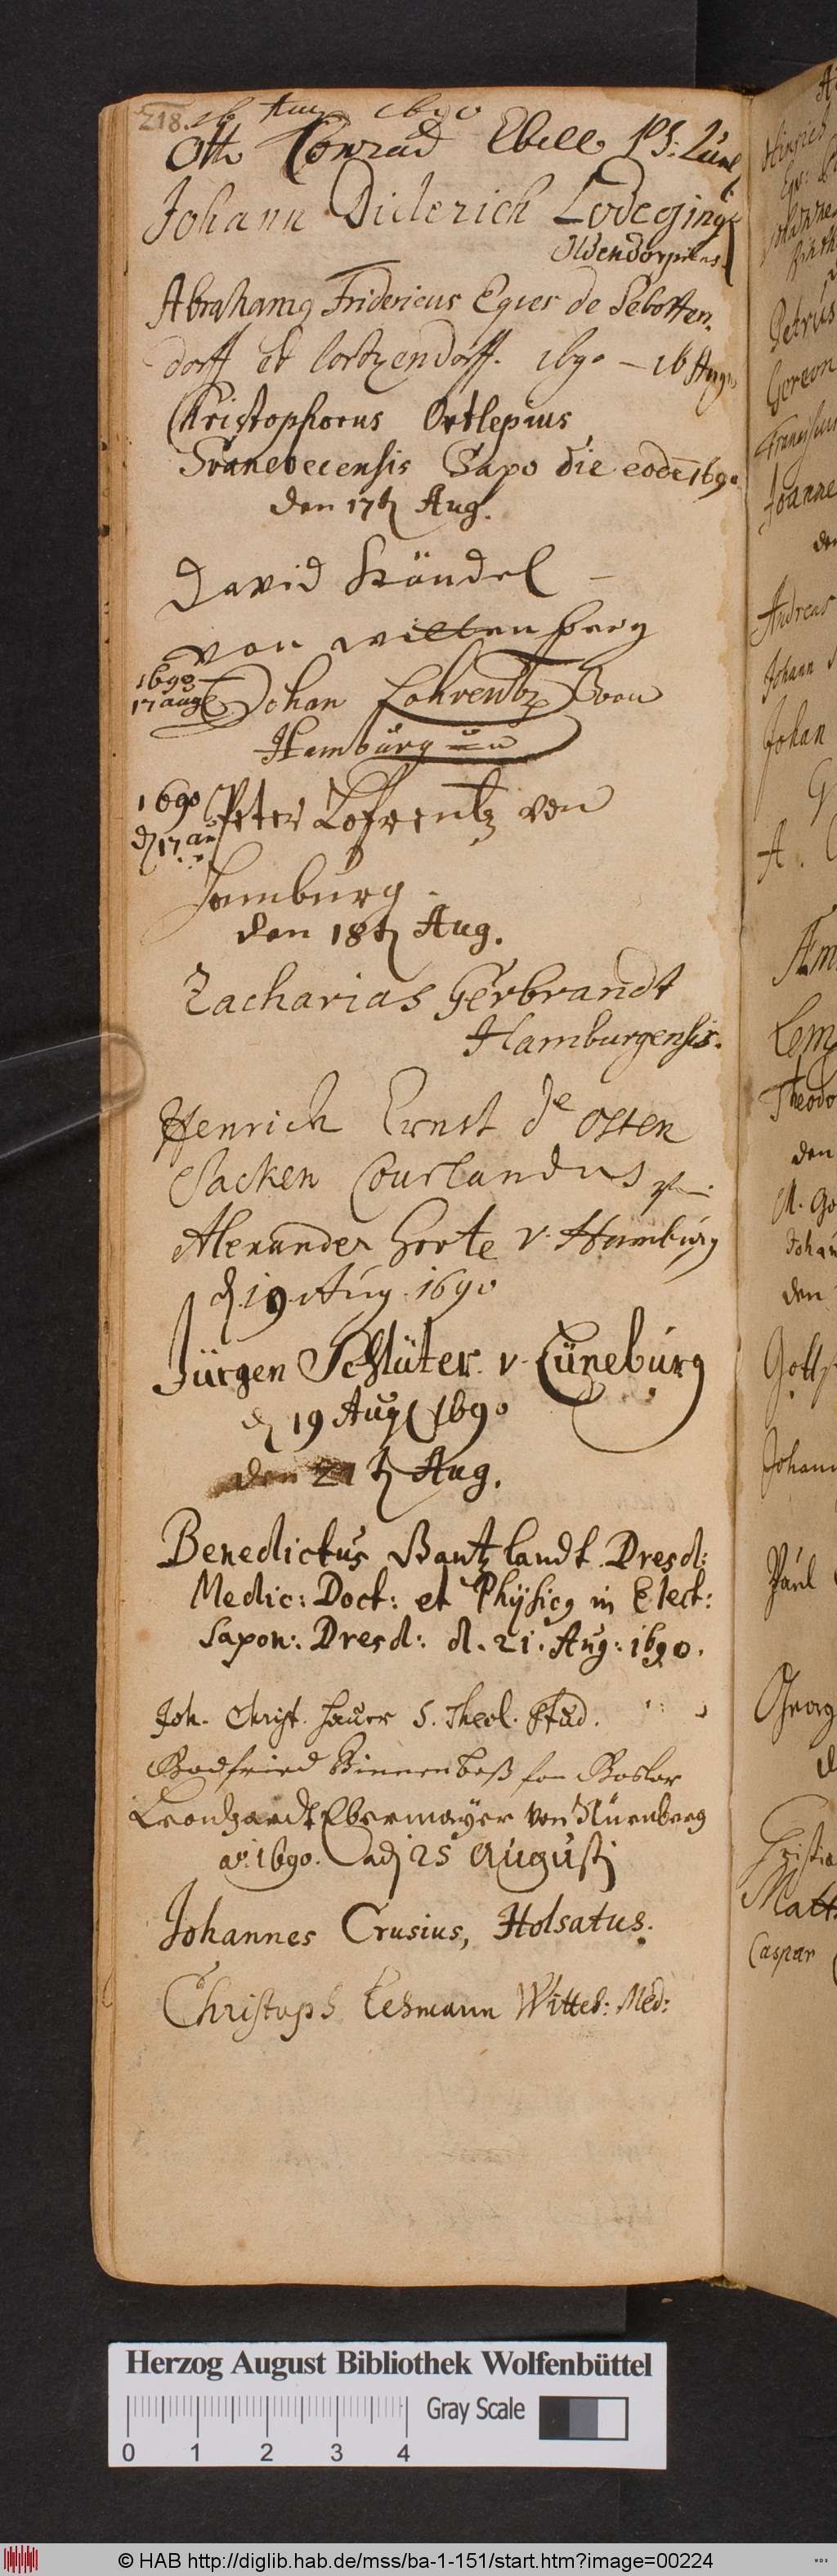 218.
16 Aug 1690
Otto Conrad Ebell PS: Lüneb
Johann Diderich Lodeging
Oldendorpiens.
Abrahamg Fridericus Eques de Sebotten-
dorff et Cortzendorff. 1690 — 16 Aug
Christophorus Ortlepius
Saxo die eod 1690
den 17t Aug.
David Händel
von Wittenberg
1690
17 aug Johan Lohrentz von
Hamburg
1690 Peter Lohrentz von
d 17 au
Hamburg
den 18t Aug.
Zacharias Gerbrandt
Hamburgensis.
Henrich Ernst de Osten
Sacken Courlandus
Alexander Horte v. Hamburg
d. 19 Aug. 1690
Jürgen Schlüter v. Lüneburg
d 19 Aug 1690
den 21t Aug.
Benedictus Bantzlandt Dresd:
Medic: Doct: et Physicg in Elect:
Saxon: Dresd: d. 21. Aug: 1690.
Joh. Christ. Hauer S. Theol. Stud.
Leonhardt Ebermayer von Nürnberg
ao. 1690. adj 25 Augustj
Johannes Crusius, Holsatus.
Christoph Lehmann Witteb: Med:
Petrus
Andreas
Johann
Johan
A.
Theodo
den
den
Johann
Paul
Georg
Matt
Caspar
Herzog August Bibliothek Wolfenbüttel
Gray Scale
0 1 2 3 4
© HAB http://diglib.hab.de/mss/ba-1-151/start.htm?image=00224